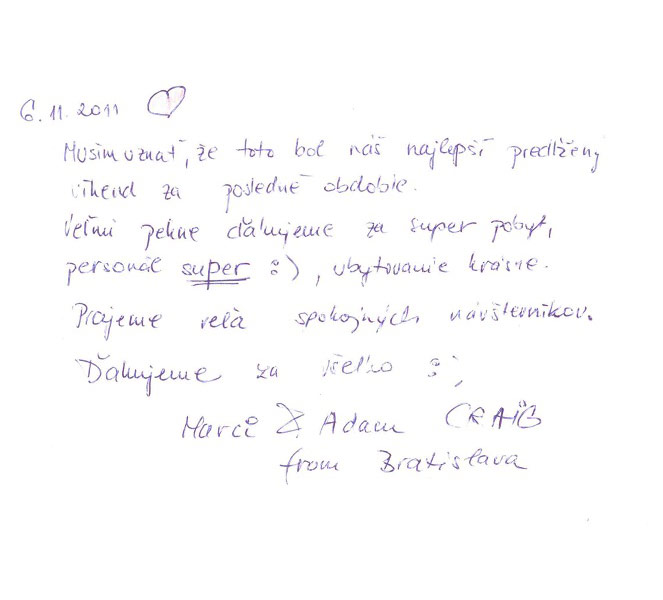 6. 11. 2011
Musím uznať, že toto bol náš najlepší predlžený
víkend za posledné obdobie.
Veľmi pekne ďakujeme za super pobyt,
personál super :), ubytovanie krásne.
Prajeme veľa spokojných návštevníkov.
Ďakujeme za všetko :)
Marci & Adam
from Bratislava